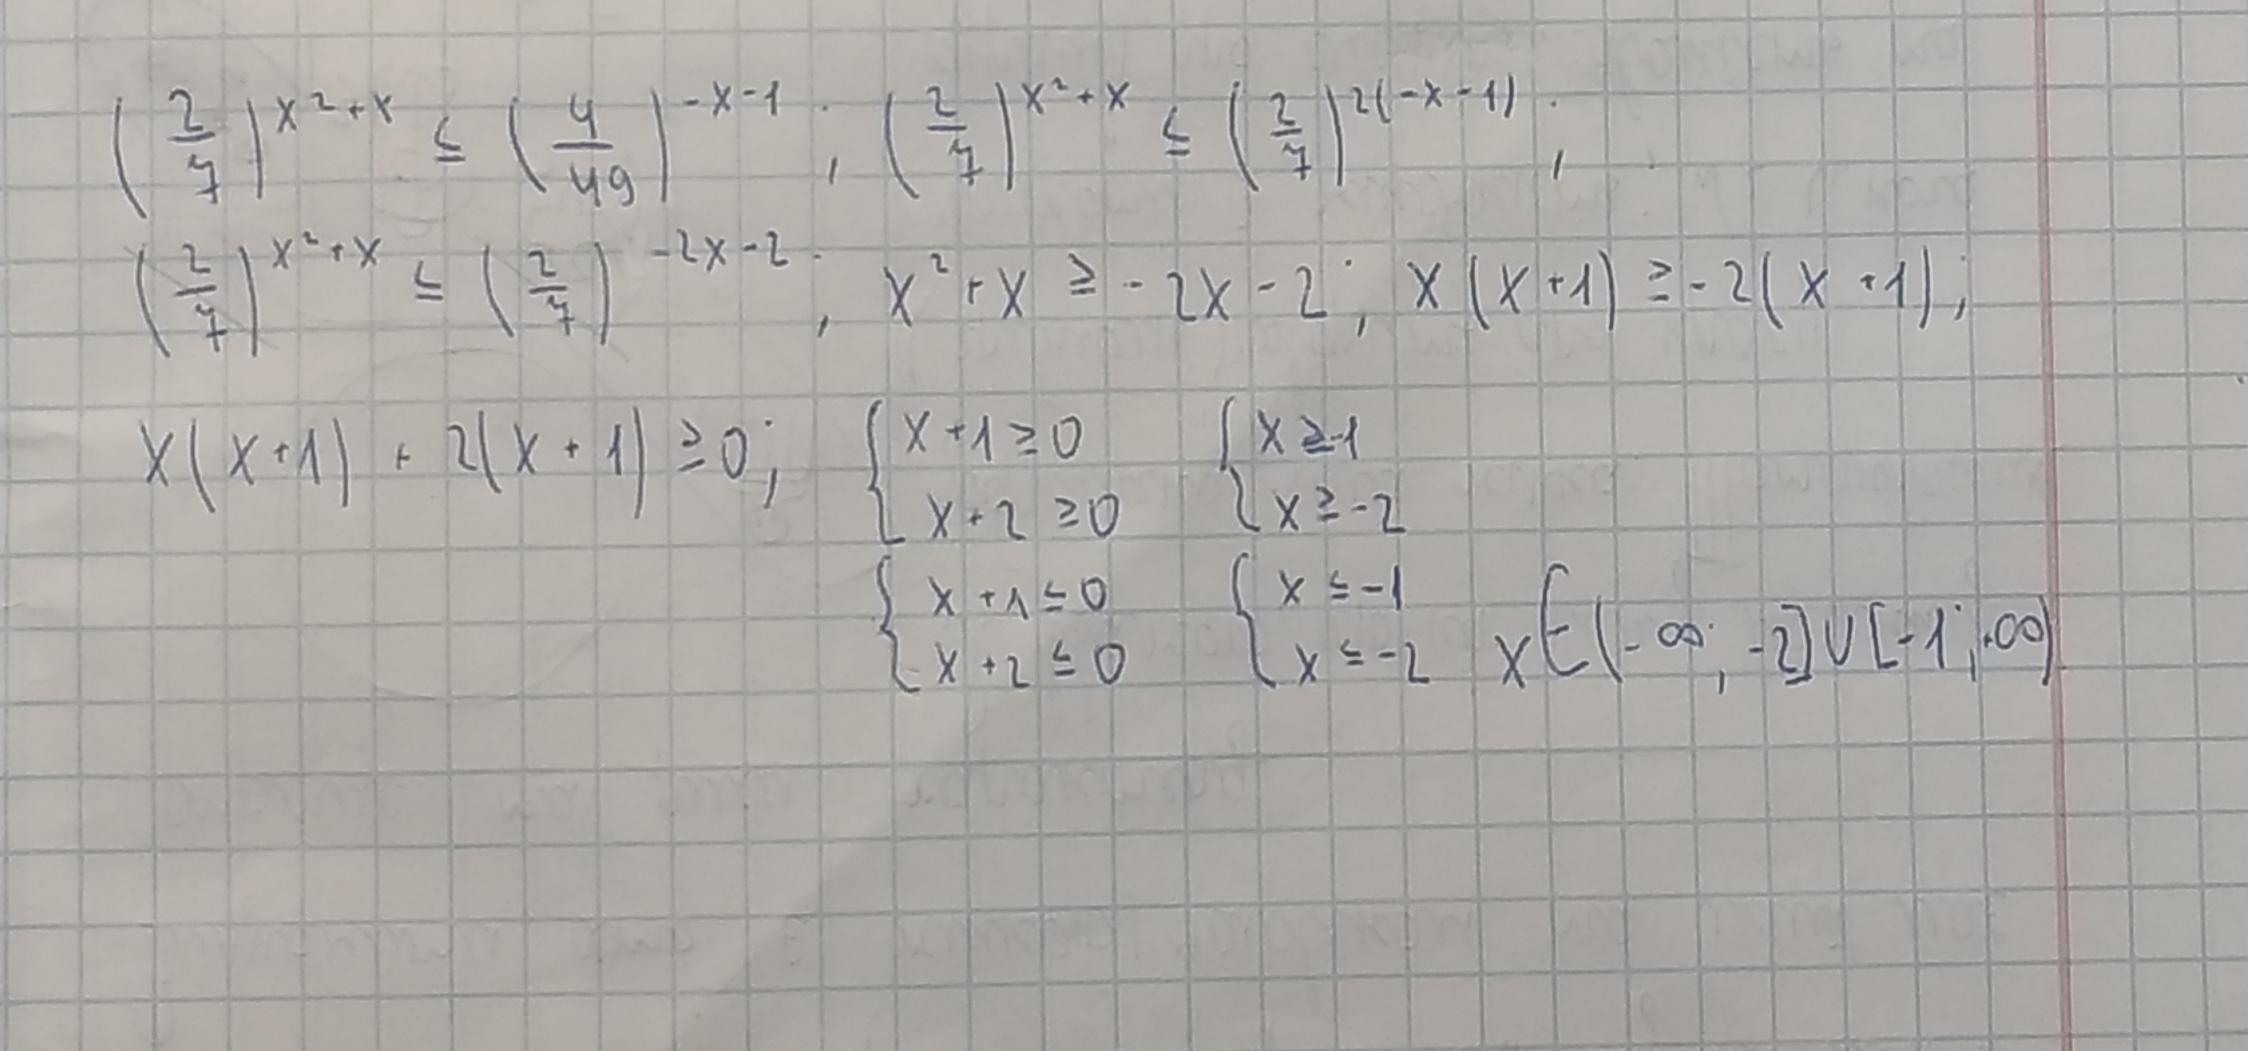 (2/7)^(x²+x) ≤ (4/49)^(-x-1); (2/7)^(x²+x) ≤ (2/7)^(2(-x-1));
(2/7)^(x²+x) ≤ (2/7)^(-2x-2); x²+x ≥ -2x-2; x(x+1) ≥ -2(x+1);
x(x+1) + 2(x+1) ≥ 0; { x+1 ≥ 0 { x ≥ -1
x+2 ≥ 0 x ≥ -2
{ x+1 ≤ 0 { x ≤ -1
x+2 ≤ 0 x ≤ -2 x∈(-∞; -2]∪[-1;+∞)